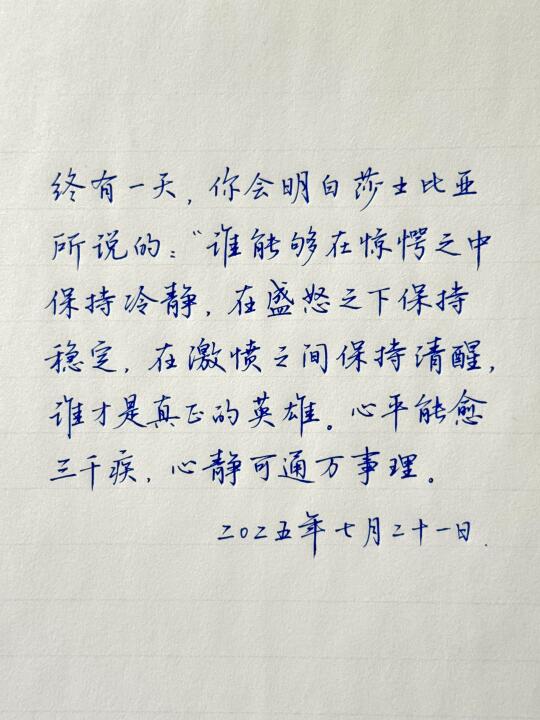 终有一天，你会明白莎士比亚
所说的：“谁能够在惊愕之中
保持冷静，在盛怒之下保持
稳定，在激愤之间保持清醒，
谁才是真正的英雄。心平能愈
三千疾，心静可通万事理。
二〇二五年七月二十一日.